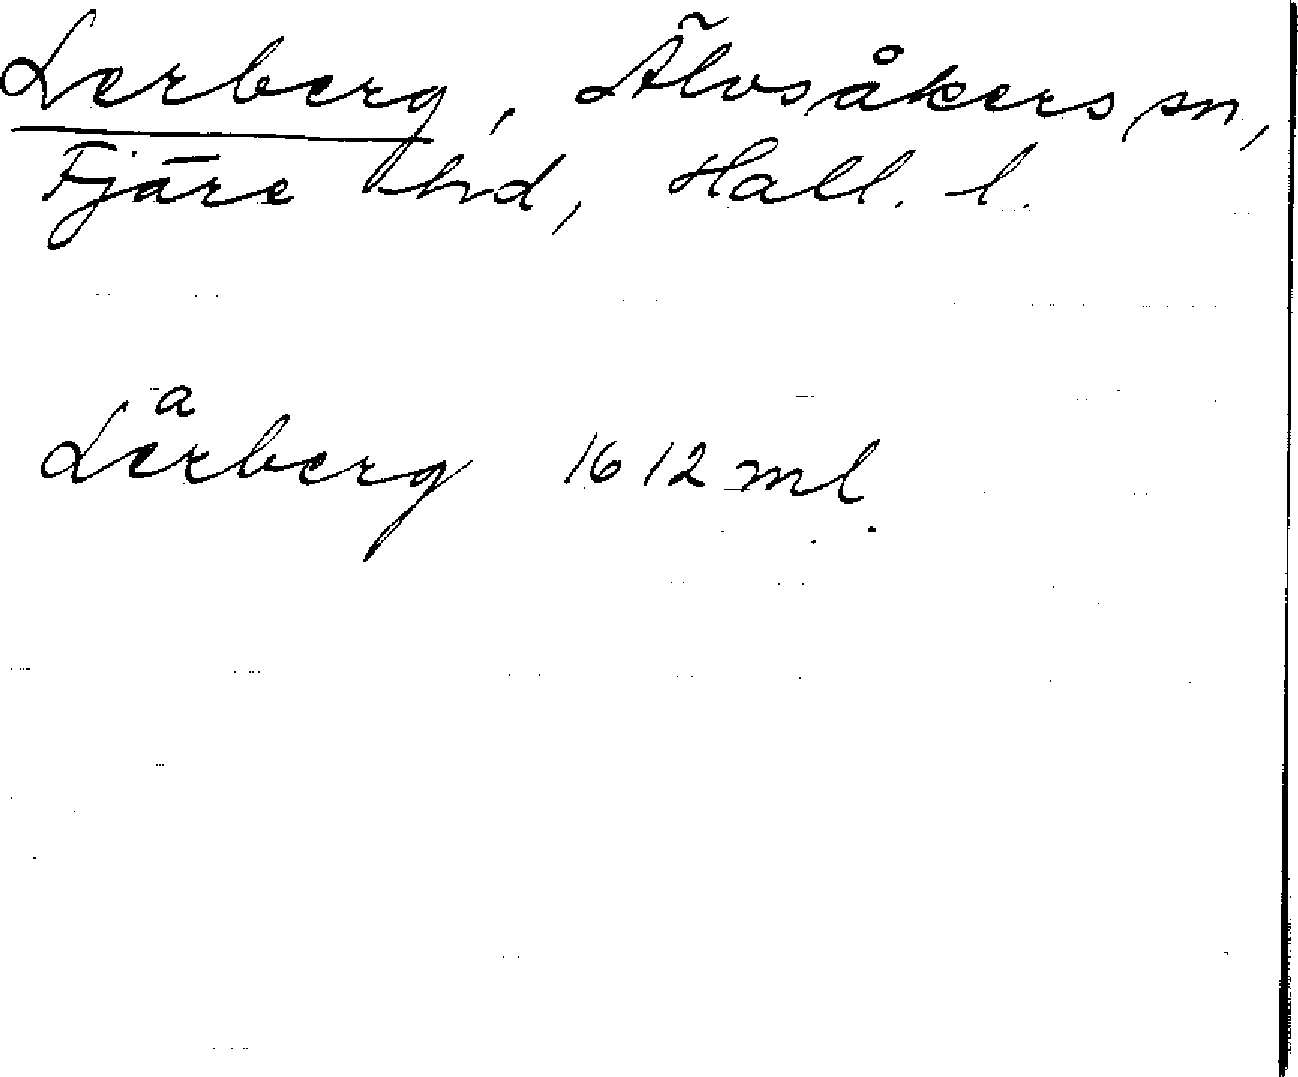 Lerberg, Älvsåkers sn,
Fjäre hd, Hall. l.
a
Lerberg 1612 ml